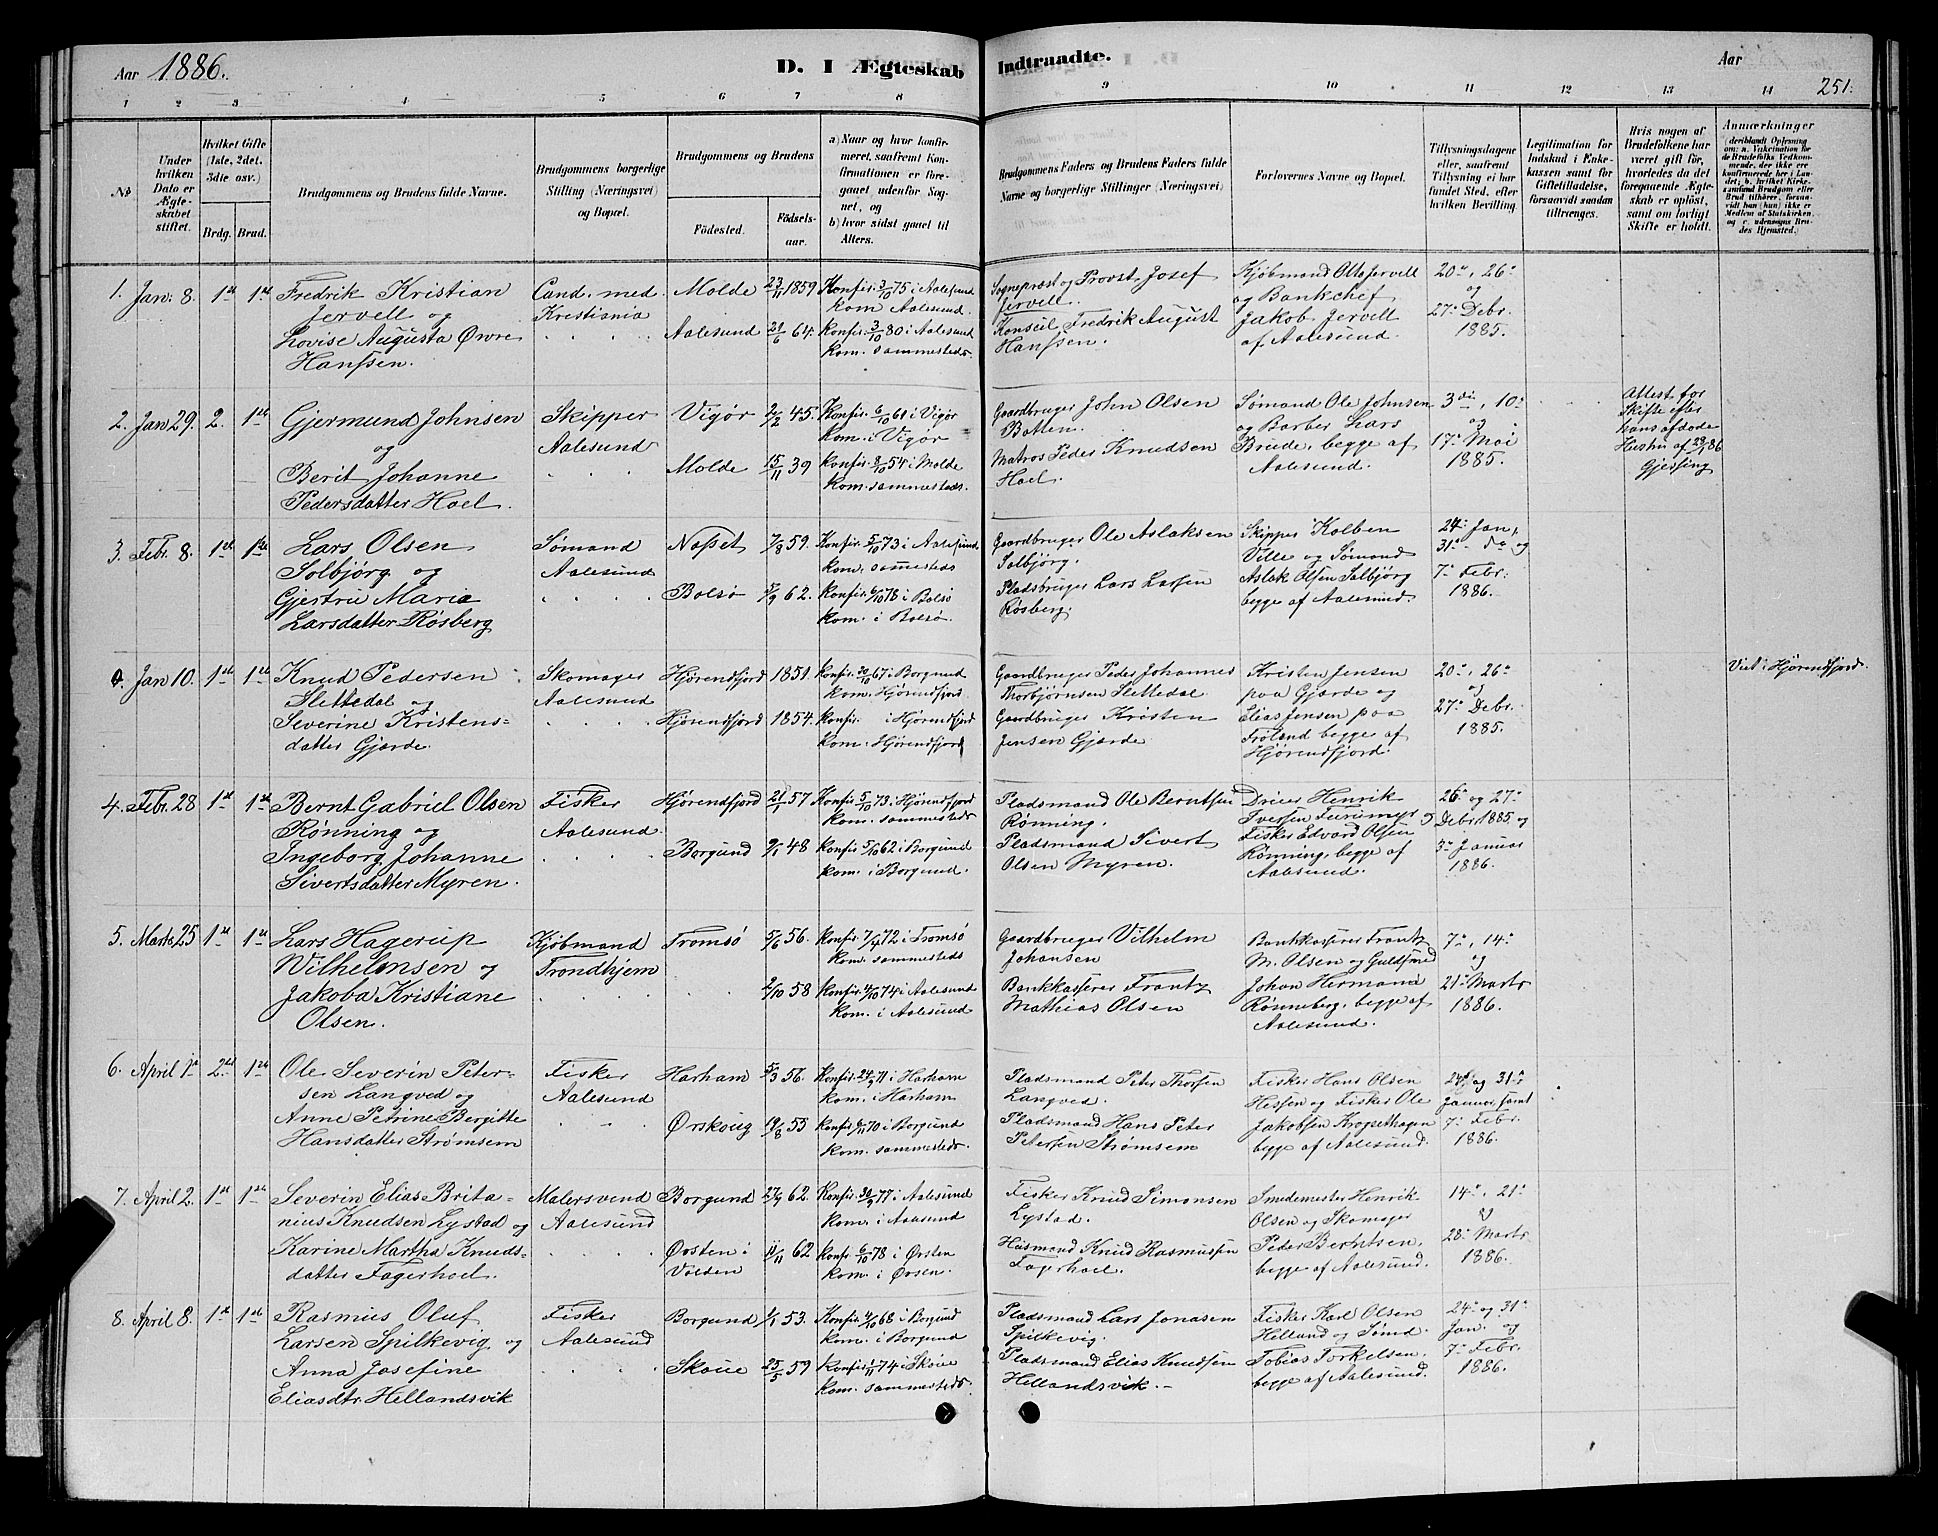 Aar 1886.
D. I Ægteskab Indtraadte.
Aar
251.
1 2 3 4 5 6 7 8 9 10 11 12 13 14
No
Under hvilken Dato er Ægteskabet stiftet.
Hvilket Gifte (1ste, 2det, 3dte osv.)
Brdg. Brud.
Brudgommens og Brudens fulde Navne.
Brudgommens borgerlige Stilling (Næringsvei) og Bopæl.
Brudgommens og Brudens
Födested.
Födselsaar.
a) Naar og hvor konfirmeret, saafremt Konfirmationen er foregaaet udenfor Sognet, og
b) hvor sidst gaaet til Alters.
Brudgommens Faders og Brudens Faders fulde Navne og borgerlige Stillinger (Næringsvei)
Forlovernes Navne og Bopæl.
Tillysningsdagene eller, saafremt Tillysning ei har fundet Sted, efter hvilken Bevilling
Legitimation for Indskud i Enkekassen samt for Giftetilladelse, forsaavidt saadan tiltrænges.
Hvis nogen af Brudefolkene har været gift för, hvorledes da det foregaaende Ægteskab er oplöst, samt om lovligt Skifte er holdt.
Anmærkninger
1. Jan. 8. 1ste 1ste
Fredrik Kristian
Jervell og
Lovise Augusta Øwre
Hanssen.
Cand. med.
Kristiania
Molde 23/11 1859
Aalesund 21/6 64.
Konfir. 3/10 75 i Aalesund
kom Aalesund.
Konfir. 3/10 80 i Aalesund
kom. sammesteds.
Sogneprest og Provst Josef
Jervell.
Konsul Fredrik August
Hanssen.
Kjøbmand Otto Jervell
og Bankchef
Jakob Jervell
af Aalesund.
20de, 26de
og
27de Debr.
1885.
2. Jan 29. 2. 1ste
Gjermund Johnsen
og
Berit Johanne
Pedersdatter Hoel.
Skipper
Aalesund
Vigør 2/2 45.
Molde 15/11 39
Konfir. 6/10 61 i Vigør
kom. i Vigør
Konfir. 8/10 54 i Molde
kom. sammesteds.
Gaardbruger John Olsen
Botten.
Matros Peder Knudsen
Hoel.
Sømand Ole Johnsen
og Barber Lars
Brude, begge af
Aalesund.
3die, 10de
og
17de Mai
1885.
Attest for
Skifte efter
hans afdøde
Hustru af 29/1 86
3. Febr. 8. 1ste 1ste
Lars Olsen
Solbjørg og
Gjertru Maria
Larsdatter Røsberg
Sømand
Aalesund
Nesset 7/8 59.
Bolsø 5/9 62.
Konfir. 5/10 73 i Aalesund
kom. sammesteds
Konfir. 6/10 78 i Bolsø
kom. i Bolsø.
Gaardbruger Ole Aslaksen
Solbjørg.
Pladsbruger Lars Larsen
Røsberg.
Skipper Kolben
Ville og Sømand
Aslak Olsen Solbjørg
begge af Aalesund.
24de Jan,
31te do og
7de Febr:
1886.
0. Jan 10. 1ste 1ste
Knud Pedersen
Slettedal og
Severine Kristens-
datter Gjærde.
Skomager
Aalesund
Hjørendfjord 1851.
Hjørendfjord 1854.
konfir. 30/10 67 i Borgund
kom. Hjørendfjord
Konfir. i Hjørendfjord
kom. Hjørendfjord
Gaardbruger Peder Johannes
Thorbjørnsen Slettedal
Gaardbruger Kristen
Jensen Gjærde
Kristen Jensen
paa Gjærde og
Elias Jensen paa
Frøland begge af
Hjørendfjord.
20de, 26de
og
27de Debr.
1885.
Viet i Hjørendfjord.
4. Febr. 28 1ste 1ste
Bernt Gabriel Olsen
Rønning og
Ingeborg Johanne
Sivertsdatter Myren.
Fisker
Aalesund.
Hjørendfjord 21/1 57
Borgund 9/1 48
Konfir. 5/10 73 i Hjørendfjord
kom. sammesteds
Konfir. 5/10 62 i Borgund
kom. i Borgund.
Pladsmand Ole Berntsen
Rønning.
Pladsmand Sivert
Olsen Myren.
Dreier Henrik
Iversen Furumyr
Fisker Edvard Olsen
Rønning, begge af
Aalesund.
26de og 27de
Debr. 1885 og
3die Januar
1886.
5. Marts 25 1ste 1ste
Lars Hagerup
Wilhelmsen og
Jakoba Kristiane
Olsen.
Kjøbmand
Trondhjem
Tromsø 5/6 56.
2/10 58
Konfir. 7/4 72 i Tromsø
kom. sammesteds
Konfir. 4/10 74 i Aalesund
kom. i Aalesund.
Gaardbruger Vilhelm
Johansen
Bankkasserer Frantz
Mathias Olsen
Bankkasserer Frantz
M. Olsen og Guldsmed
Johan Hermana
Rønneberg, begge af
Aalesund.
7de, 14de
og
21de Marts
1886.
6. April 1te 2det 1ste
Ole Severin Peter-
sen Langved og
Anne Petrine Bergitte
Hansdatter Strømsem
Fisker
Aalesund
Harham 5/3 56.
Ørskoug 19/8 55
Konfir. 24/9 71 i Harham
kom. i Harham
Konfir. 6/11 70 i Borgund
kom. sammesteds.
Pladsmand Peter Thorsen
Langved.
Pladsmand Hans Peter
Petersen Strømsem
Fisker Hans Olsen
Hessen og Fisker Ole
Jakobsen Kropsethagen
begge af Aalesund.
24de og 31te
Januar samt
7de Febr.
1886.
7. April 2. 1ste 1ste
Severin Elias Brita-
nius Knudsen Lystad og
Karine Martha Knuds-
datter Fagerhoel.
Malersvend
Aalesund
Borgund 27/9 62.
Ørsten i
Volden 11/11 62
Konfir. 30/9 77 i Aalesund
kom. i Aalesund
Konfir. 6/10 78 i Ørsten
kom. i Ørsten.
Fisker Knud Simonsen
Lystad.
Husmand Knud Rasmussen
Fagerhoel.
Smedemester Henrik
Olsen og Skomager
Peder Berntsen,
begge af Aalesund.
14de, 21de
og
28de Marts
1886.
8. April 8. 1ste 1ste
Rasmus Oluf
Larsen Spilkevig og
Anna Josefine
Eliasdtr. Hellandsvik
Fisker
Aalesund
Borgund 1/1 53.
Skoue 25/5 59
Konfir. 4/10 68 i Borgund
kom. i Borgund
Konfir. 1/11 74 i Skoue
kom. sammesteds.
Pladsmand Lars Jonasen
Spilkevig.
Pladsmand Elias Knudsen
Hellandsvik.
Fisker Karl Olsen
Helland og Sømd.
Tobias Torkelsen.
begge af Aalesund.
24de og 31te
Jan. og
7de Febr.
1886.